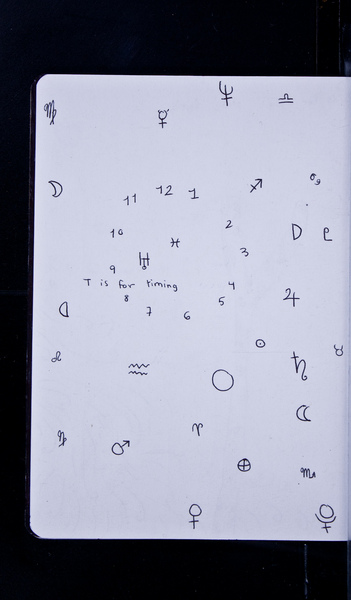 ♍ ☿ ♆ ♎
☽ 11 12 1 ♐
10 ♓ 2 D ♇
9 ♅ 3
T is for timing
8 7 6 5 4 ♃
♌ ♒ ☉ ♄ ♉
♂ ♈ ☾
⊕ ♏
♀